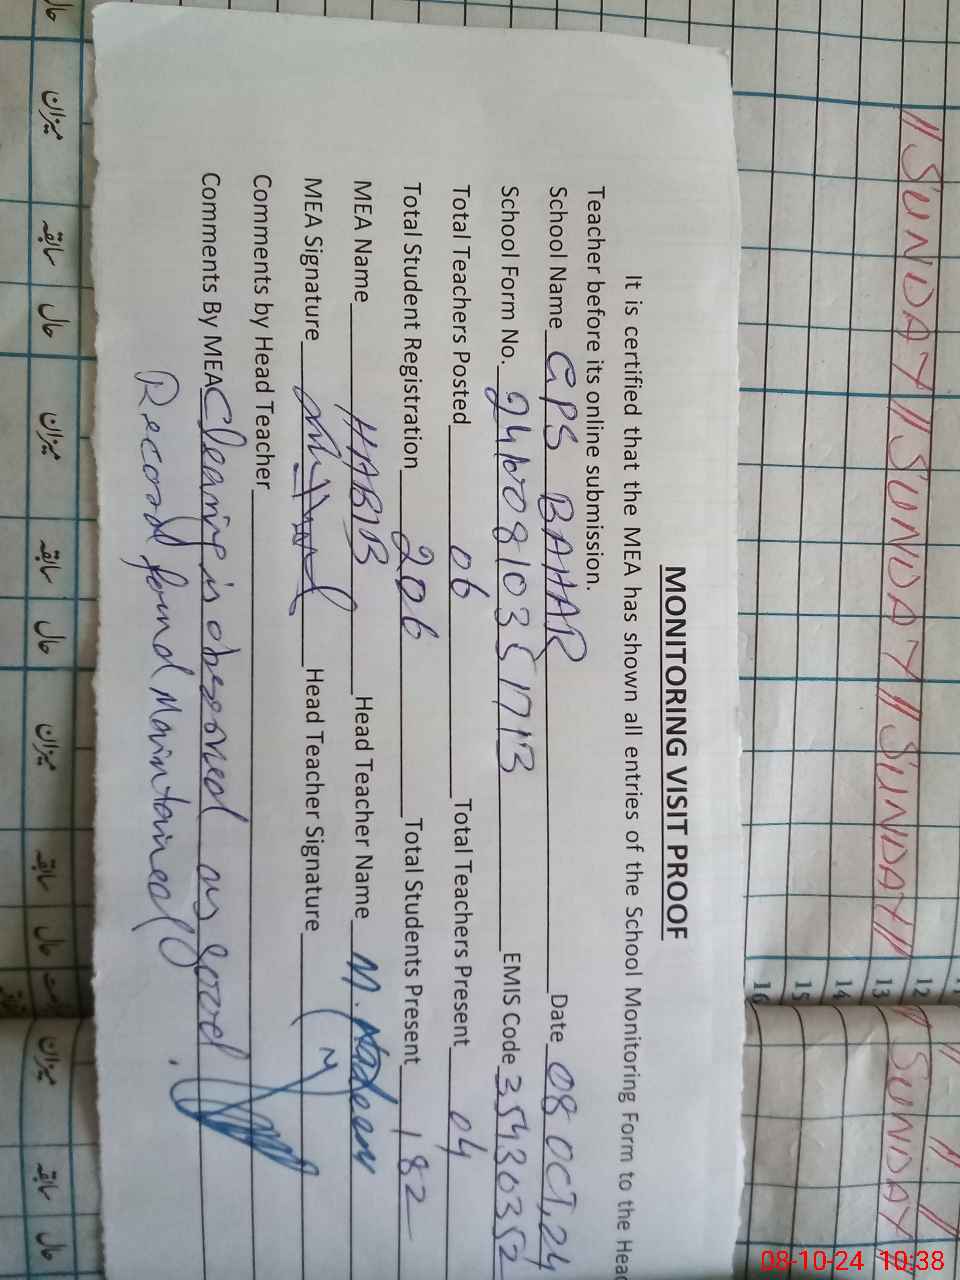 MONITORING VISIT PROOF
It is certified that the MEA has shown all entries of the School Monitoring Form to the Head
Teacher before its online submission.
School Name GPS BAHAR Date 08 OCT, 24
School Form No. EMIS Code 35430352
Total Teachers Posted 06 Total Teachers Present 04
Total Student Registration 206 Total Students Present 182
MEA Name HABIB Head Teacher Name M. Nadeem
MEA Signature Head Teacher Signature
Comments by Head Teacher
Comments By MEA Cleaning is observed as good.
Record found Maintained
//SUNDAY//SUNDAY//SUNDAY//
SUNDAY
12
13
14
15
16
میزان سابقہ حال میزان سابقہ حال میزان سابقہ حال
میزان سابقہ حال
08-10-24 10:38